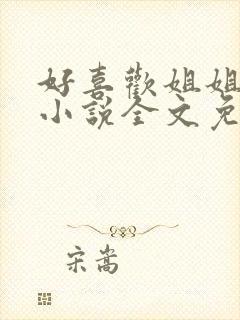 好喜歡姐姐
小說全文免
宋嵩